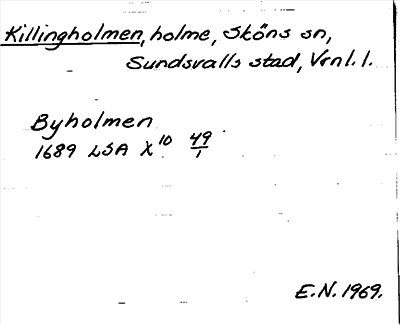 Killingholmen, holme, Sköns sn,
Sundsvalls stad, Vrnl. l.
Byholmen
1689 LSA X 10 49/1
E.N. 1969.